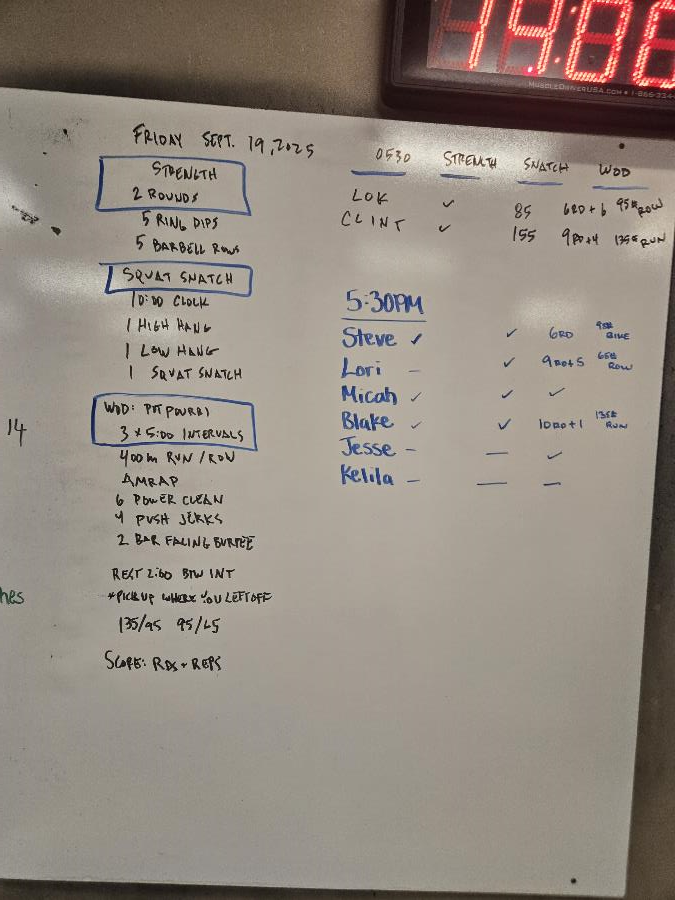 14:06
MUSCLEDRIVERUSA.COM • 1-866-
FRIDAY SEPT. 19, 2025
STRENGTH
2 ROUNDS
5 RING DIPS
5 BARBELL ROWS
SQUAT SNATCH
10:00 CLOCK
1 HIGH HANG
1 LOW HANG
1 SQUAT SNATCH
WOD: POT POURRI
3 x 5:00 INTERVALS
400m RUN / ROW
AMRAP
6 POWER CLEAN
4 PUSH JERKS
2 BAR FACING BURPEE
REST 2:00 BTW INT
*PICK UP WHERE YOU LEFT OFF
135/95 95/65
SCORE: RDS + REPS
0530 STRENGTH SNATCH WOD
LOK ✓ 85 6RD+6 95# ROW
CLINT ✓ 155 9RD+4 135# RUN
5:30PM
Steve ✓ ✓ 6RD 95# BIKE
Lori – ✓ 9RD+5 65# ROW
Micah ✓ ✓ ✓
Blake ✓ ✓ 10RD+1 135# RUN
Jesse – — ✓
Kelila – — –
14
hes